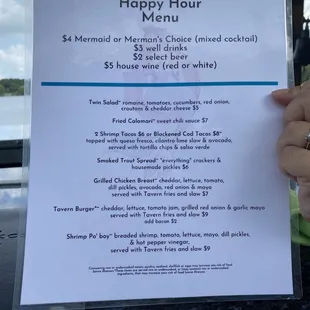 Happy Hour
Menu
$4 Mermaid or Merman's Choice (mixed cocktail)
$3 well drinks
$2 select beer
$5 house wine (red or white)
Twin Salad* romaine, tomatoes, cucumbers, red onion,
croutons & cheddar cheese $5
Fried Calamari* sweet chili sauce $7
2 Shrimp Tacos $6 or Blackened Cod Tacos $8*
topped with queso fresco, cilantro lime slaw & avocado,
served with tortilla chips & salsa verde
Smoked Trout Spread* "everything" crackers &
housemade pickles $6
Grilled Chicken Breast* cheddar, lettuce, tomato,
dill pickles, avocado, red onion & mayo
served with Tavern fries and slaw $7
Tavern Burger** cheddar, lettuce, tomato jam, grilled red onion & garlic mayo
served with Tavern fries and slaw $9
add bacon $2
Shrimp Po' boy* breaded shrimp, tomato, lettuce, mayo, dill pickles,
& hot pepper vinegar,
served with Tavern fries and slaw $9